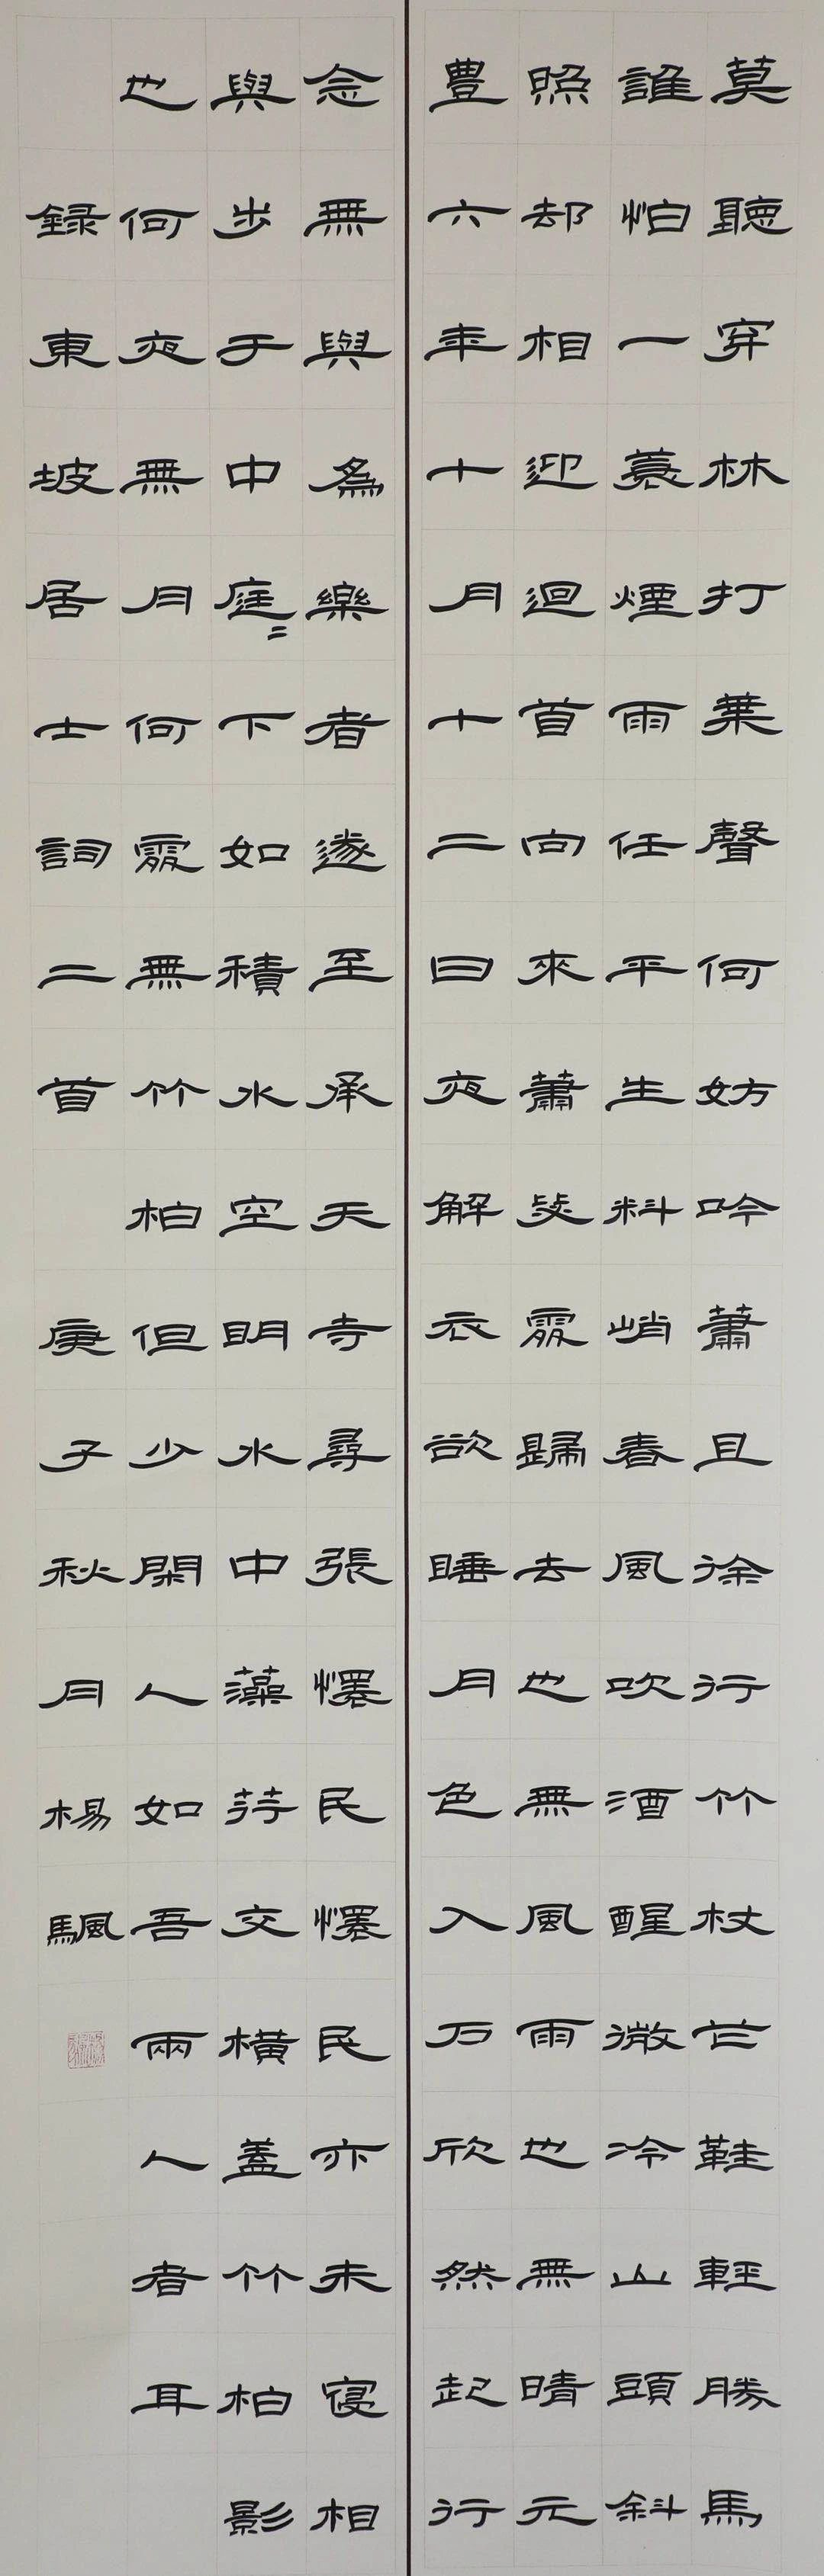 莫聽穿林打葉聲何妨吟蕭且徐行竹杖芒鞋輕勝馬
誰怕一蓑煙雨任平生料峭春風吹酒醒微冷山頭斜
照却相迎迴首向來蕭瑟處歸去也無風雨也無晴元
豊六年十月十二日夜解衣欲睡月色入戶欣然起行
念無與為樂者遂至承天寺尋張懷民懷民亦未寢相
與步于中庭〻下如積水空明水中藻荇交橫蓋竹柏影
也何夜無月何處無竹柏但少閑人如吾兩人者耳
録東坡居士詞二首 庚子秋月楊颿